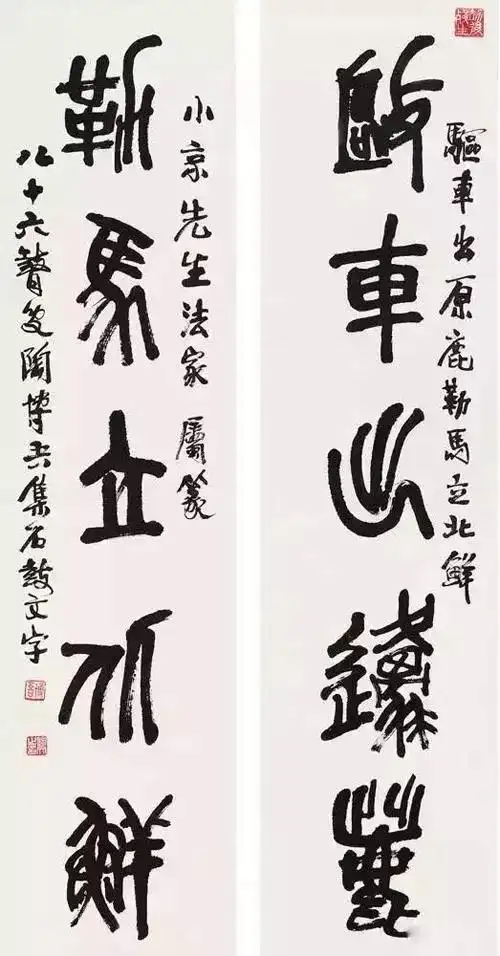 驅車出原鹿勒馬立北鮮
敺車出邍
小京先生法家屬篆
勒馬立北鮮
八十六瞽叟陶博吾集石鼓文字